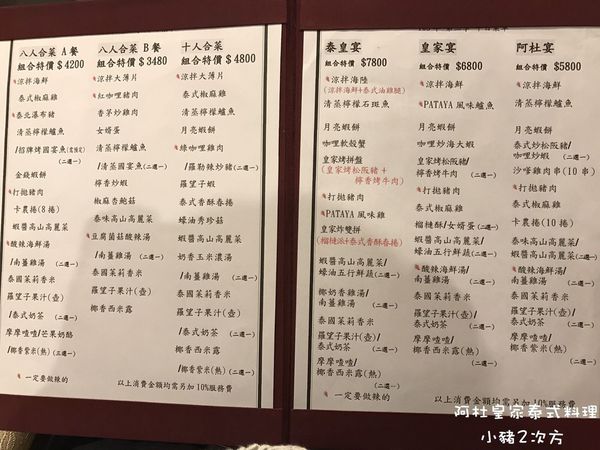 八人合菜 A 餐
組合特價 $4200
涼拌海鮮
泰式椒麻雞
泰北瀑布豬
清蒸檸檬鱸魚
/招牌烤國宴魚(需預定)
(二選一)
金錢蝦餅
打拋豬肉
卡農捲(8捲)
蝦醬高山高麗菜
酸辣海鮮湯
/南薑雞湯 (二選一)
泰國茉莉香米
羅望子果汁(壺)
/泰式奶茶 (二選一)
摩摩喳喳/芒果奶酪
/椰香紫米(熱) (三選一)
一定要做辣的
八人合菜 B 餐
組合特價 $3480
涼拌大薄片
紅咖哩豬肉
香茅炒雞肉
女婿蛋
/清蒸國宴魚(二選一)
檸香炒蝦
椒麻杏鮑菇
泰味高山高麗菜
豆腐菌菇酸辣湯
/南薑雞湯 (二選一)
泰國茉莉香米
羅望子果汁(壺)
椰香西米露
十人合菜
組合特價 $4800
涼拌大薄片
清蒸檸檬鱸魚
月亮蝦餅
綠咖哩雞肉
/羅勒辣炒豬(二選一)
羅望子蝦
泰式香酥春捲
蠔油秀珍菇
蝦醬高山高麗菜
奶香玉米濃湯
/南薑雞湯 (二選一)
泰國茉莉香米
羅望子果汁(壺)
/泰式奶茶 (二選一)
椰香西米露
/椰香紫米(熱) (二選一)
以上消費金額均需另加 10%服務費
泰皇宴
組合特價 $7800
涼拌海陸
(涼拌海鮮+泰式油雞腿)
清蒸檸檬石斑魚
月亮蝦餅
咖哩軟殼蟹
皇家烤拼盤
(皇家烤松阪豬+
檸香烤牛肉)
打拋豬肉
PATAYA 風味雞
皇家炸雙拼
(榴槤派+泰式香酥春捲)
蝦醬高山高麗菜/
蠔油五行鮮蔬(二選一)
椰奶香雞湯/
南薑雞湯 (二選一)
泰國茉莉香米
羅望子果汁(壺)/
泰式奶茶 (二選一)
摩摩喳喳/
椰香西米露/
椰香紫米(熱) (二選一)
一定要做辣的
皇家宴
組合特價 $6800
涼拌海鮮
PATAYA 風味鱸魚
月亮蝦餅
咖哩炒海大蝦
皇家烤松阪豬/
檸香烤牛肉(二選一)
打拋豬肉
泰式椒麻雞
榴槤酥/女婿蛋(二選一)
蝦醬高山高麗菜/
蠔油五行鮮蔬(二選一)
酸辣海鮮湯/
南薑雞湯 (二選一)
泰國茉莉香米
羅望子果汁(壺)/
泰式奶茶 (二選一)
摩摩喳喳/
椰香紫米(熱) (二選一)
阿杜宴
組合特價 $5800
涼拌海鮮
清蒸檸檬鱸魚
月亮蝦餅
泰式炒松阪豬/
咖哩炒蝦 (二選一)
沙嗲雞肉串(10 串)
打拋豬肉
泰式椒麻雞
卡農捲(10 捲)
蝦醬高山高麗菜
泰式高山高麗菜(二選一)
酸辣海鮮湯/
南薑雞湯 (二選一)
泰國茉莉香米
羅望子果汁(壺)/
泰式奶茶 (二選一)
椰香西米露/
椰香紫米(熱) (二選一)
以上消費金額均需另加 10%服務費
阿杜皇家泰式料理
小豬2次方